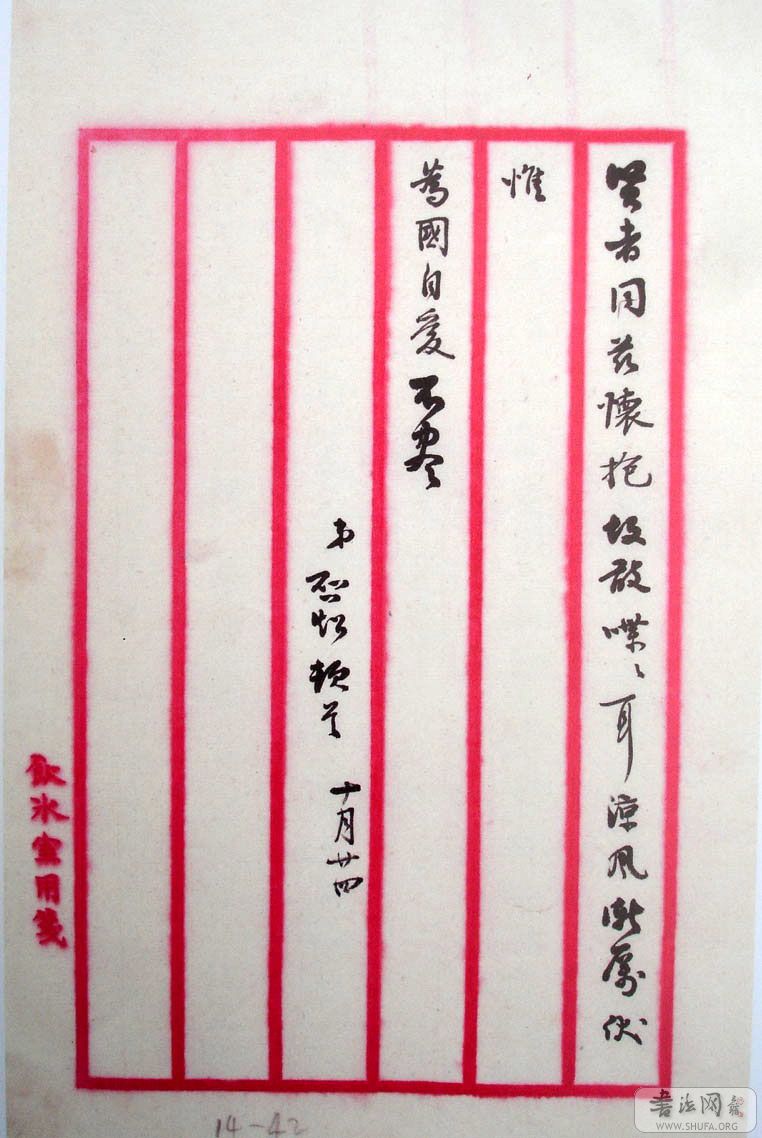 賢者同茲懷抱故敢喋々耳涼風漸厲伏
惟
為國自愛不盡
弟啟超頓首 十月廿四
飲冰室用箋
14-42
書法网
WWW.SHUFA.ORG